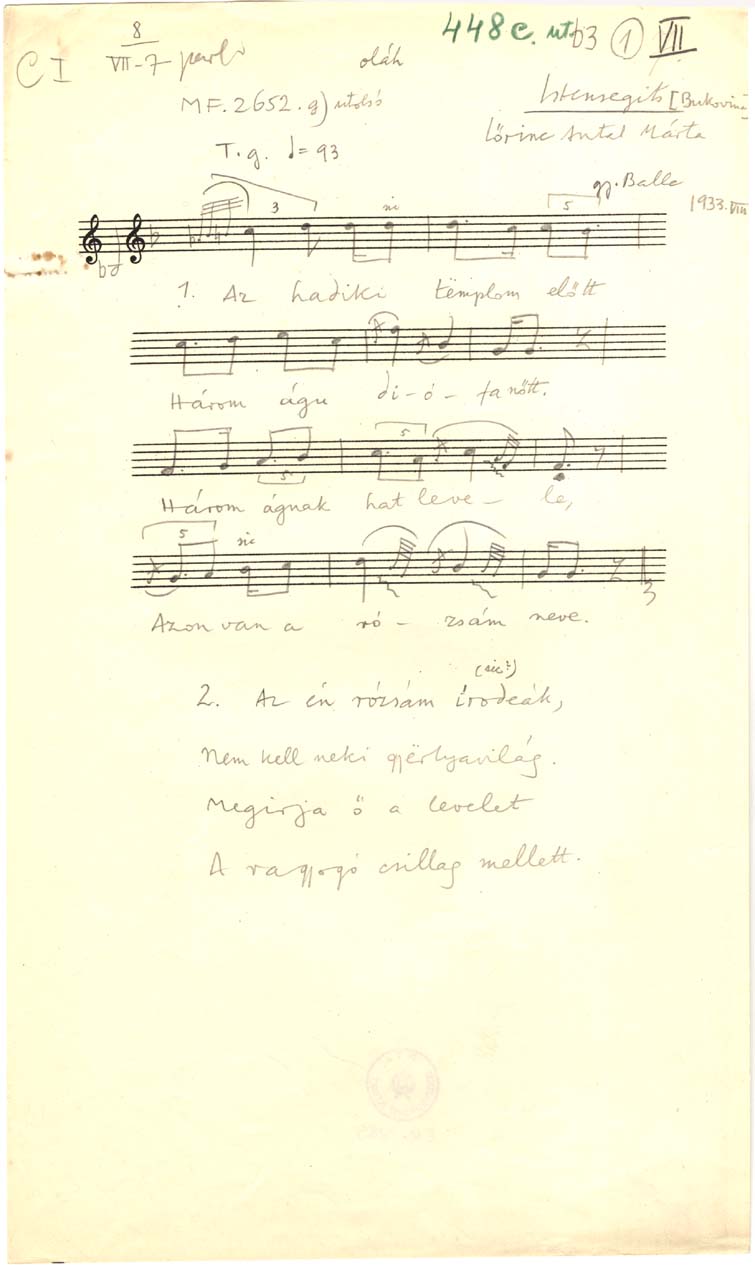 448c. ut. b3 ① VII
C I
8
VII-7
oláh
MF. 2652. g) utolsó
Istensegíts [Bukovina]
Lőrinc Antal Márta
T. g. ♩= 93
gy. Balla
1933. VIII
3
sic
5
1. Az hadiki tëmplom előtt
Három águ di-ó-fa nőtt.
5
5
Három ágnak hat leve- le,
5
sic
Azon van a ró- zsám neve.
(sic!)
2. Az én rózsám írodeák,
Nem kell neki gyërtyavilág.
Megirja ő a levelet
A ragyogó csillag mellett.